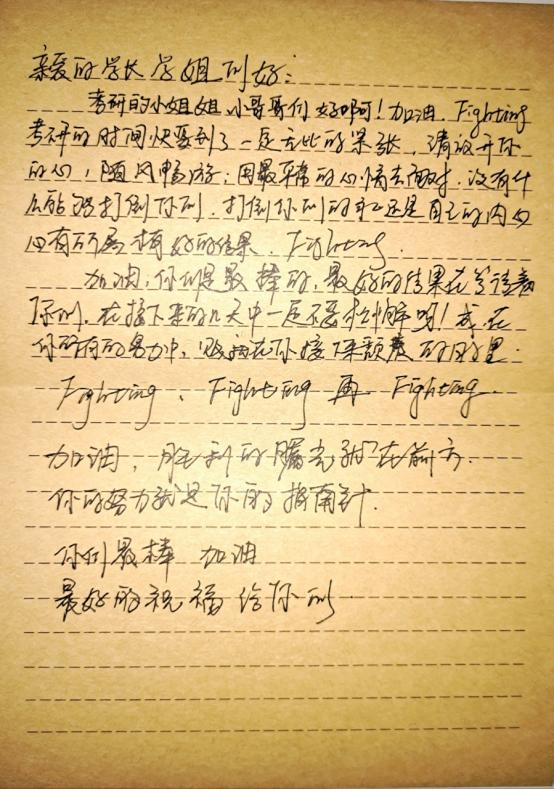 亲爱的学长学姐们好：
考研的小姐姐、小哥哥们好啊！加油，Fighting
考研的时间快要到了一定无比的紧张，请放开你
的心，随风畅游，用最平常的心情去面对，没有什
么能够打倒你们，打倒你们的永远是自己的内心
心有所属 才有好的结果．Fighting．
加油，你们是最棒的，最好的结果在等待着
你们，在接下来的几天中一定不要松懈哟！成在
你所有的努力中，败在你接下来颓废的时间里．
Fighting、Fighting 再 Fighting．
加油，胜利的曙光就在前方．
你的努力就是你的指南针．
你们最棒 加油
最好的祝福给你们．